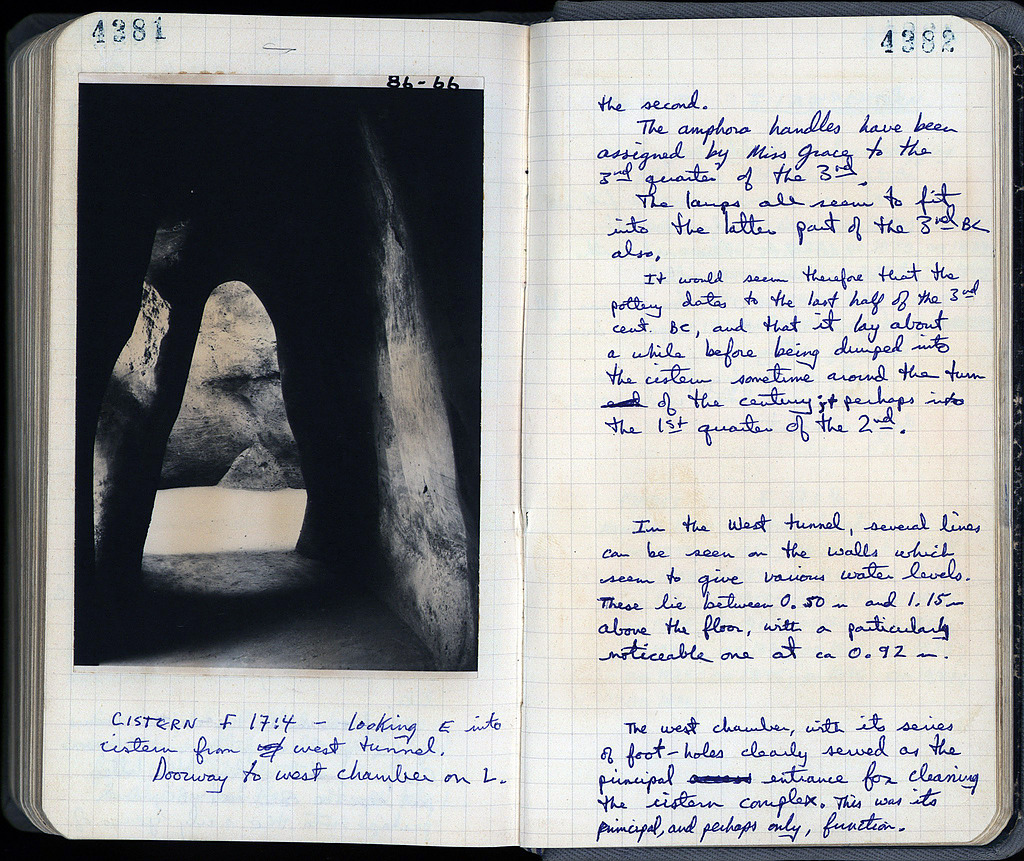 4381
86-66
CISTERN F 17:4 - looking E into
cistern from west tunnel.
Doorway to west chamber on L.
4382
the second.
The amphora handles have been
assigned by Miss Grace to the
3nd quarter of the 3rd.
The lamps all seem to fit
into the latter part of the 3rd BC
also.
It would seem therefore that the
pottery dates to the last half of the 3rd
cent. BC, and that it lay about
a while before being dumped into
the cistern sometime around the turn
of the century; perhaps into
the 1st quarter of the 2nd.
In the West tunnel, several lines
can be seen on the walls which
seem to give various water levels.
These lie between 0.50 m and 1.15 m
above the floor, with a particularly
noticeable one at ca 0.92 m.
The west chamber, with its series
of foot-holes clearly served as the
principal entrance for cleaning
the cistern complex. This was its
principal, and perhaps only, function.